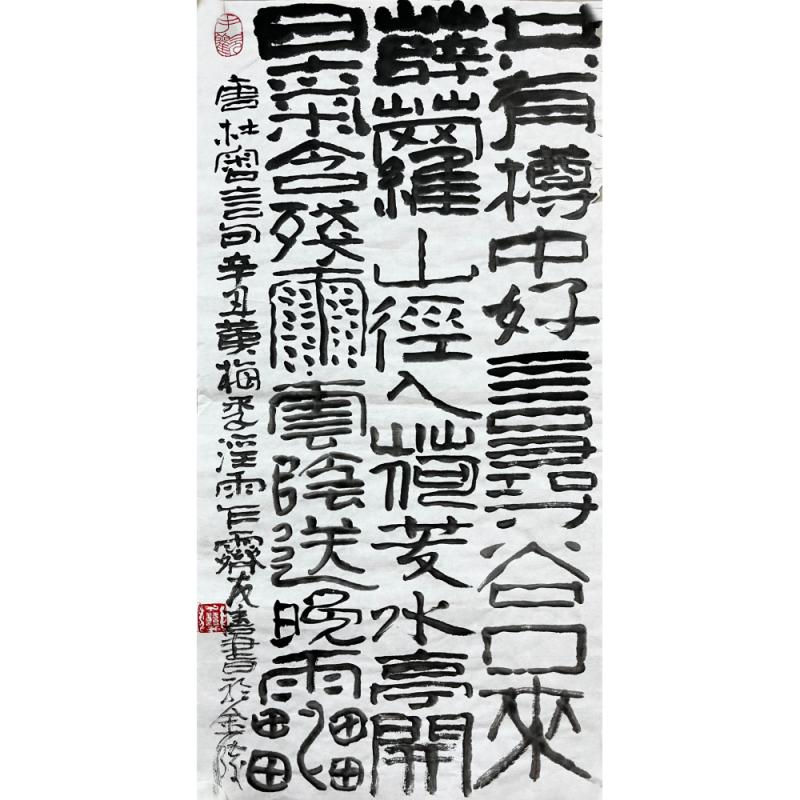 共有樽中好言尋谷口來
薜蘿山徑入荷芰水亭開
日氣含殘雨雲陰送晚雷
唐杜審言句辛丑黄梅季淫雨乍霽友書於金陵